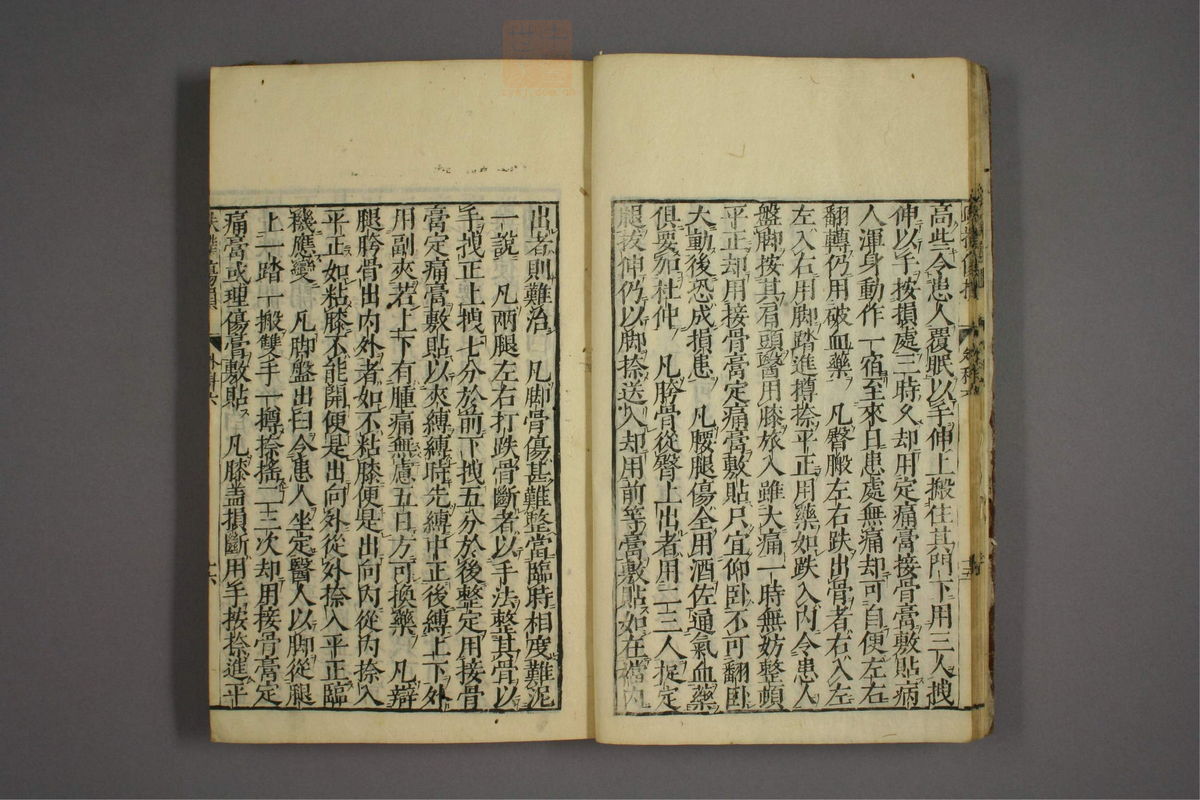 高些令患人覆眠以手伸上搬住其門下用三人拽
伸以手按損處三時久却用定痛膏接骨膏敷貼病
人渾身動作一宿至來日患處無痛却可自便左右
翻轉仍用破血藥　凡臀腬左右趺出骨者右入左
左入右用脚踏進撙捺平正用藥如趺入內令患人
盤脚按其肩頭醫用膝抜入雖大痛一時無妨整頓
平正却用接骨膏定痛膏敷貼只宜仰卧不可翻卧
大動後恐成損患　凡腰腿傷全用酒佐通氣血藥
俱要加杜仲　凡胯骨從臀上出者用二三人捉定
腿拔伸仍以脚捺送入却用前等膏敷貼如在襠內
出者則難治　凡脚骨傷甚難整當臨時相度難泥
一說　凡兩腿左右打跌骨斷者以手法整其骨以
手拽正上拽七分於前下拽五分於後整定用接骨
膏定痛膏敷貼以夾縛縛時先縛中正後縛上下外
用副夾若上下有腫痛無慮五日方可換藥　凡辯
腿胯骨出內外者如不粘膝便是出向內從內捺入
平正如粘膝不能開便是出向外從外捺入平正臨
機應變　凡脚盤出臼令患人坐定醫人以脚從腿
上一踏一搬雙手一撙捺搖二三次却用接骨膏定
痛膏或理傷膏敷貼　凡膝盖損斷用手按捺進平
外科六